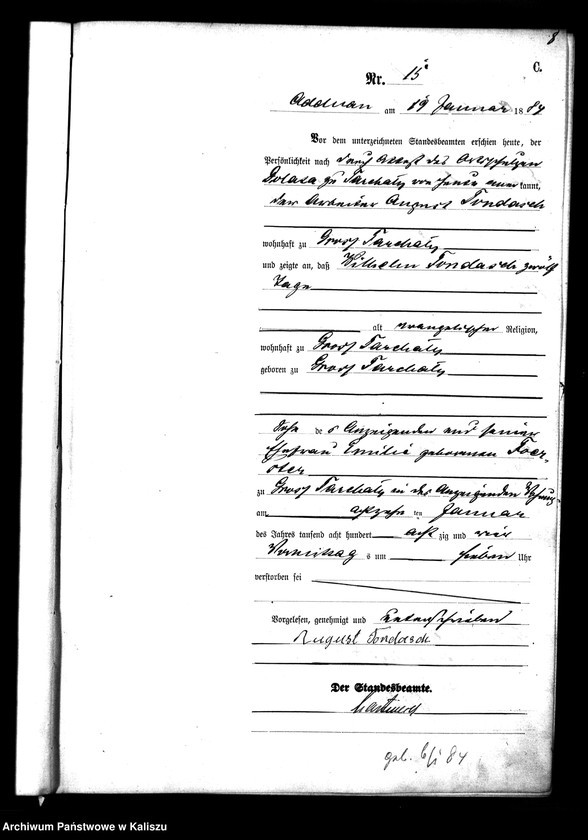 8
C.
Nr. 15
Adelnau am 19 Januar 1884
Vor dem unterzeichneten Standesbeamten erschien heute, der
Persönlichkeit nach durch Attest des Ortsschulzen
zu Tarchaly von heute anerkannt,
der Arbeiter August Tondasch
wohnhaft zu Gross Tarchaly
und zeigte an, daß Wilhelm Tondasch zwölf
Tage
alt evangelischer Religion,
wohnhaft zu Gross Tarchaly
geboren zu Gross Tarchaly
Sohn des Anzeigenden und seiner
Ehefrau Emilie geborenen Foer-
ster
zu Gross Tarchaly in des Anzeigenden Wohnung
am achtzehn ten Januar
des Jahres tausend acht hundert acht zig und vier
Vormittags um sieben Uhr
verstorben sei
Vorgelesen, genehmigt und unterschrieben
August Tondasch
Der Standesbeamte.
geb. 6/1 84
Archiwum Państwowe w Kaliszu